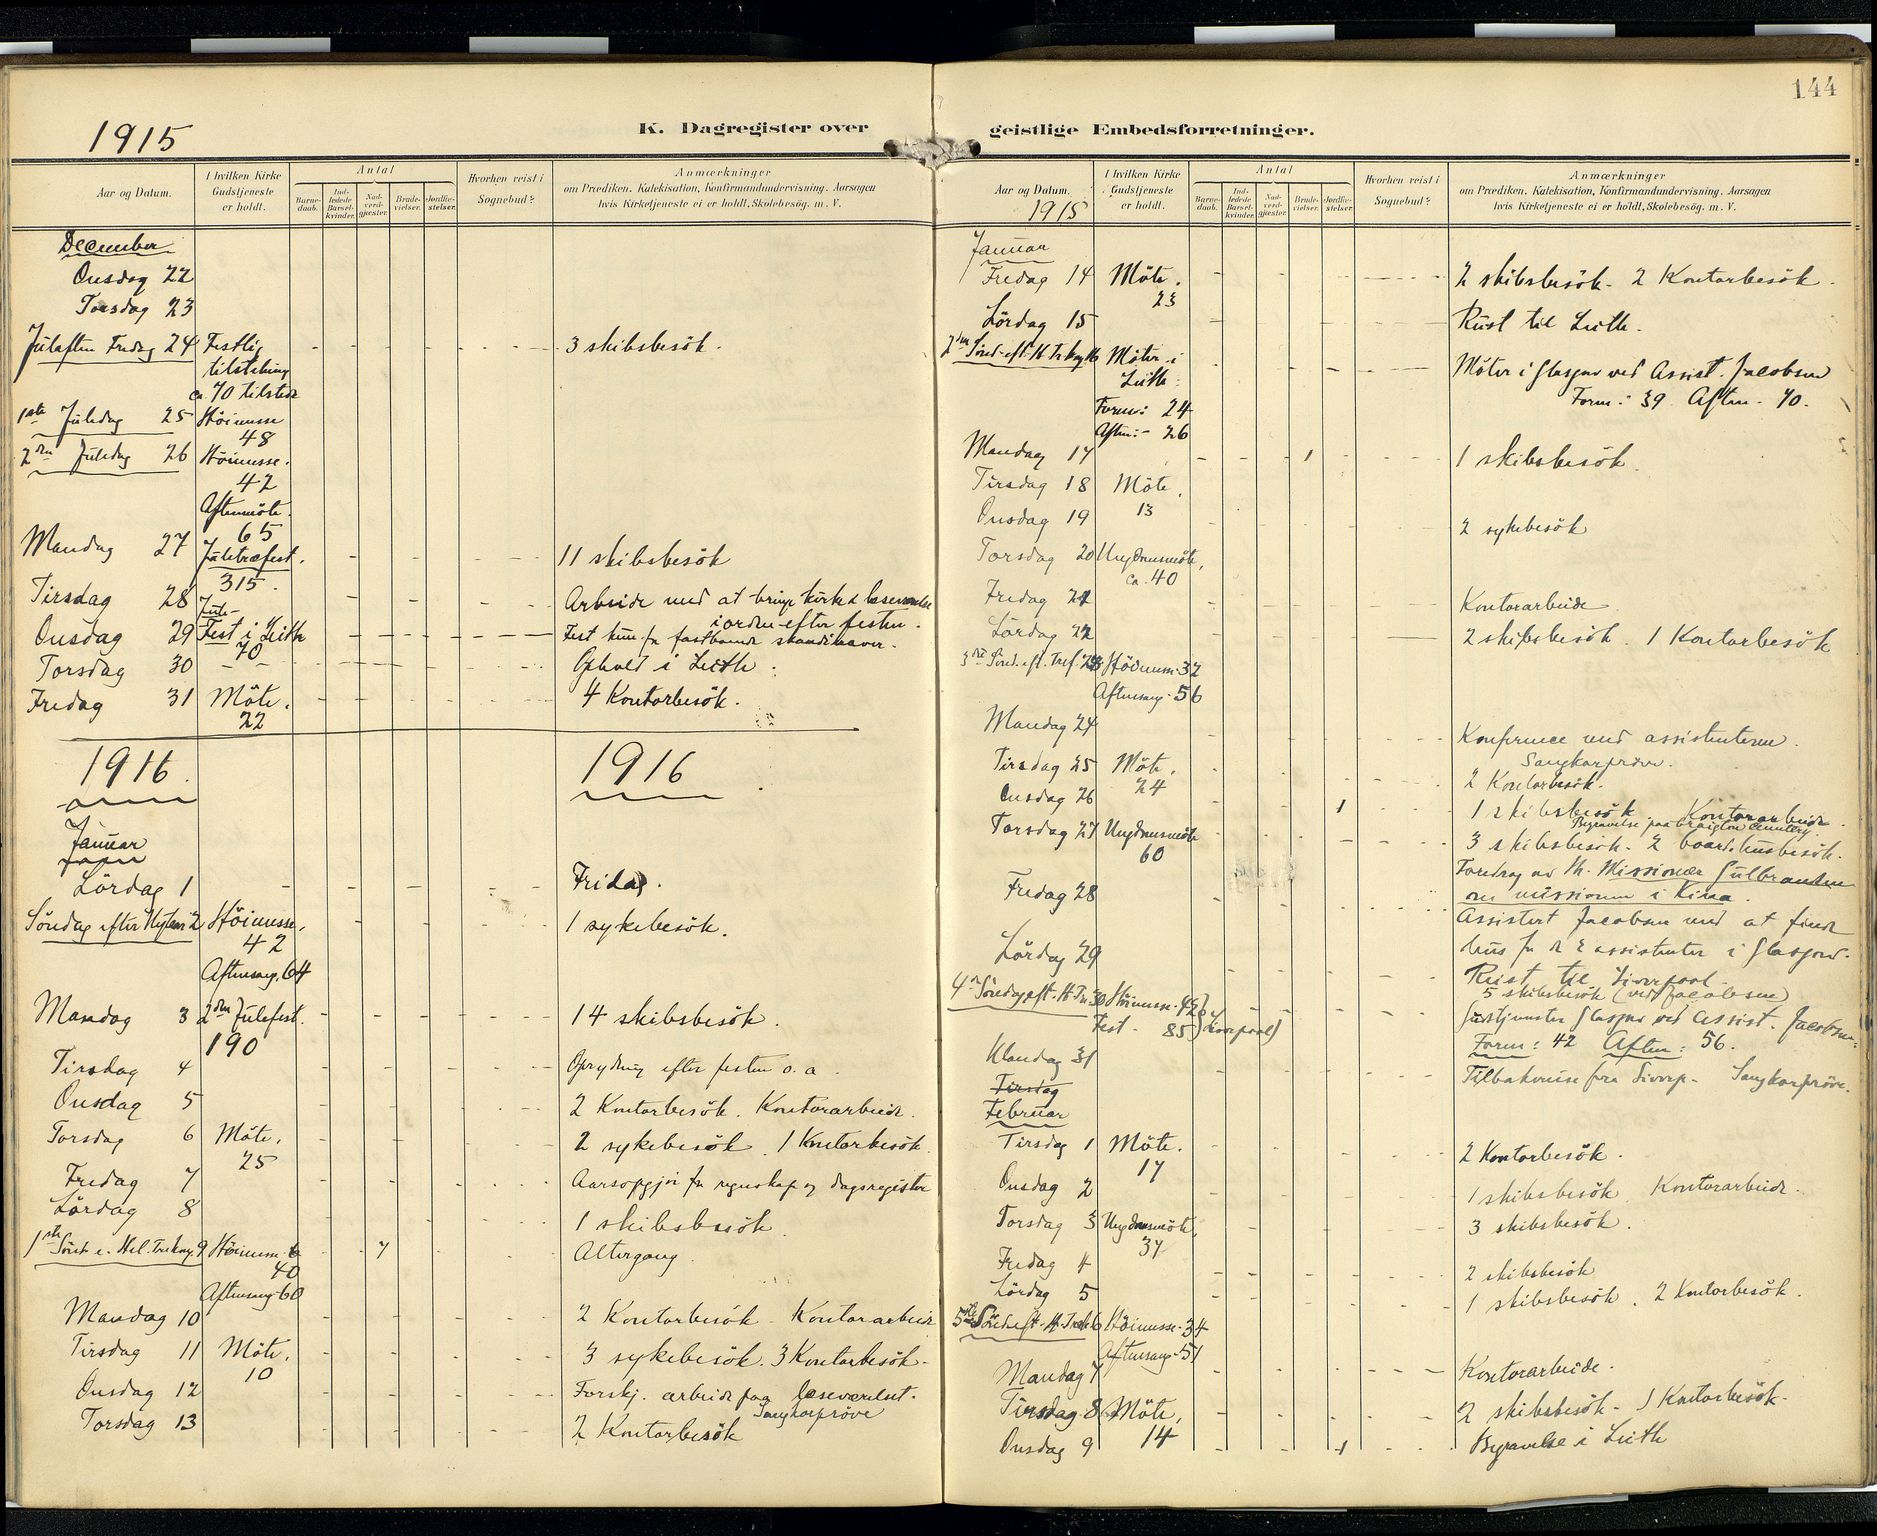 144
1915
K. Dagregister over
Aar og Datum.
I hvilken Kirke Gudstjeneste er holdt.
Antal
Barnedaab.
Indledede Barselkvinder.
Nadverdgjester.
Brudevielser.
Jordfæstelser.
Hvorhen reist i Sognebud?
Anmærkninger
om Prædiken, Katekisation, Konfirmandundervisning, Aarsagen
hvis Kirketjeneste ei er holdt, Skolebesøg. m. V.
December
Onsdag 22
Torsdag 23
Julaften Fredag 24 Festlig 3 skibsbesök.
tilstelning
ca. 70 tilstede
1ste Juledag 25 Höimesse
48
2den Juledag 26 Höimesse.
42
Aftenmöte.
65
Mandag 27 Juletræfest. 11 skibsbesök
315.
Tirsdag 28 Arbeide med at bringe kirke & læseværelse
i orden efter festen.
Jule-
Onsdag 29 Fest i Leith Fest kun for fastboende skandinaver.
70
Torsdag 30 Ophold i Leith.
Fredag 31 Möte. 4 Kontorbesök.
22
1916. 1916
Januar
Lördag 1 Fridag.
Söndag efter Nytaar 2 Höimesse, 1 sykebesök.
42
Aftensang. 64
Mandag 3 2den Julefest. 14 skibsbesök.
190
Tirsdag 4 Oprydning efter festen o. a.
Onsdag 5 2 Kontorbesök. Kontorarbeide.
Torsdag 6 Möte. 2 sykebesök. 1 Kontorbesök.
25
Fredag 7 Aarsopgjör for regnskap og dagsregister
Lördag 8 1 skibsbesök
1ste Sönd. e. Hel. Trekong. 9 Höimesse 7 Altergang.
40
Aftensang 60
Mandag 10 2 Kontorbesök - Kontorarbeide
Tirsdag 11 Möte. 3 sykebesök. 3 Kontorbesök.
10
Onsdag 12 Forskj. arbeide paa læseværelset.
Sangkorpröve
Torsdag 13 2 Kontorbesök
geistlige Embedsforretninger.
Aar og Datum.
1915
I hvilken Kirke Gudstjeneste er holdt.
Antal
Barnedaab.
Indledede Barselkvinder.
Nadverdgjester.
Brudevielser.
Jordfæstelser.
Hvorhen reist i Sognebud?
Anmærkninger
om Prædiken, Katekisation, Konfirmandundervisning, Aarsagen
hvis Kirketjeneste ei er holdt, Skolebesøg. m. V.
Januar
Fredag 14 Möte. 2 skibsbesök - 2 Kontorbesök.
23
Lördag 15 Reist til Leith.
2den Sönd. eft. H. Trekong. 16 Möter i Möter i Glasgow ved Assist. Jacobsen
Leith: Form: 39. Aften. 70.
Form: 24
Aften: - 26
Mandag 17 1 1 skibsbesök.
Tirsdag 18 Möte.
13
Onsdag 19 2 sykebesök
Torsdag 20 Ungdomsmöte,
ca. 40
Fredag 21 Kontorarbeide
Lördag 22 2 skibsbesök. 1 Kontorbesök
3die Sönd. eft. Tref. 23 Höimesse. 32
Aftensang. 56
Mandag 24 Konference med assistenterne.
Sangkorpröve.
Tirsdag 25 Möte. 2 Kontorbesök.
24
Onsdag 26 1 1 skibsbesök. Kontorarbeide.
Begravelse paa Craigton Cemetery.
Torsdag 27 Ungdomsmöte 3 skibsbesök - 2 boardhusbesök.
60 Foredrag av Hr. Missionær Gulbrandsen
om missionen i Kina.
Fredag 28 Assistert Jacobsen med at finde
hus for de 2 assistenter i Glasgow.
Lördag 29 Reist til Liverpool.
5 skibsbesök (ved Jacobsen)
4de Söndag eft. H. Tr. 30 Höimesse. 42 Gudstjenester Glasgow ved Assist. Jacobsen:
Fest - 85 (Liverpool) Form: 42 Aften: 56.
Mandag 31 Tilbakereise fra Liverp. Sangkorpröve.
Tirsdag
Februar
Tirsdag 1 Möte. 2 Kontorbesök.
17
Onsdag 2 1 skibsbesök. Kontorarbeide.
Torsdag 3 Ungdomsmöte, 3 skibsbesök.
37
Fredag 4 2 skibsbesök
Lördag 5 1 skibsbesök. 2 Kontorbesök.
5te Sönd. eft. H. Trek. 6 Höimesse. 34
Aftensang. 51
Mandag 7 Kontorarbeide.
Tirsdag 8 Möte. 2 skibsbesök - 1 Kontorbesök.
14
Onsdag 9 1 Begravelse i Leith